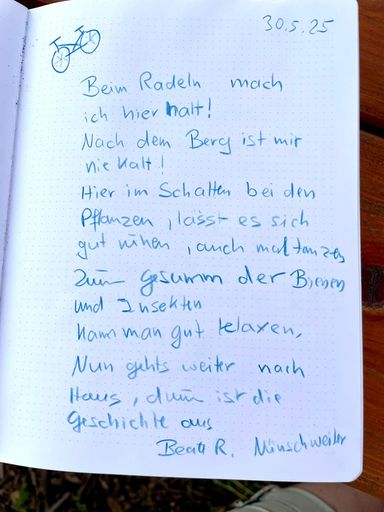 30.5.25
Beim Radeln mach
ich hier halt!
Nach dem Berg ist mir
nie kalt!
Hier im Schatten bei den
Pflanzen, lässt es sich
gut ruhen, auch mal tanzen
Zum Gesumm der Bienen
und Insekten
kann man gut relaxen,
Nun gehts weiter nach
Haus, drum ist die
Geschichte aus
Beate R. Münschweiler